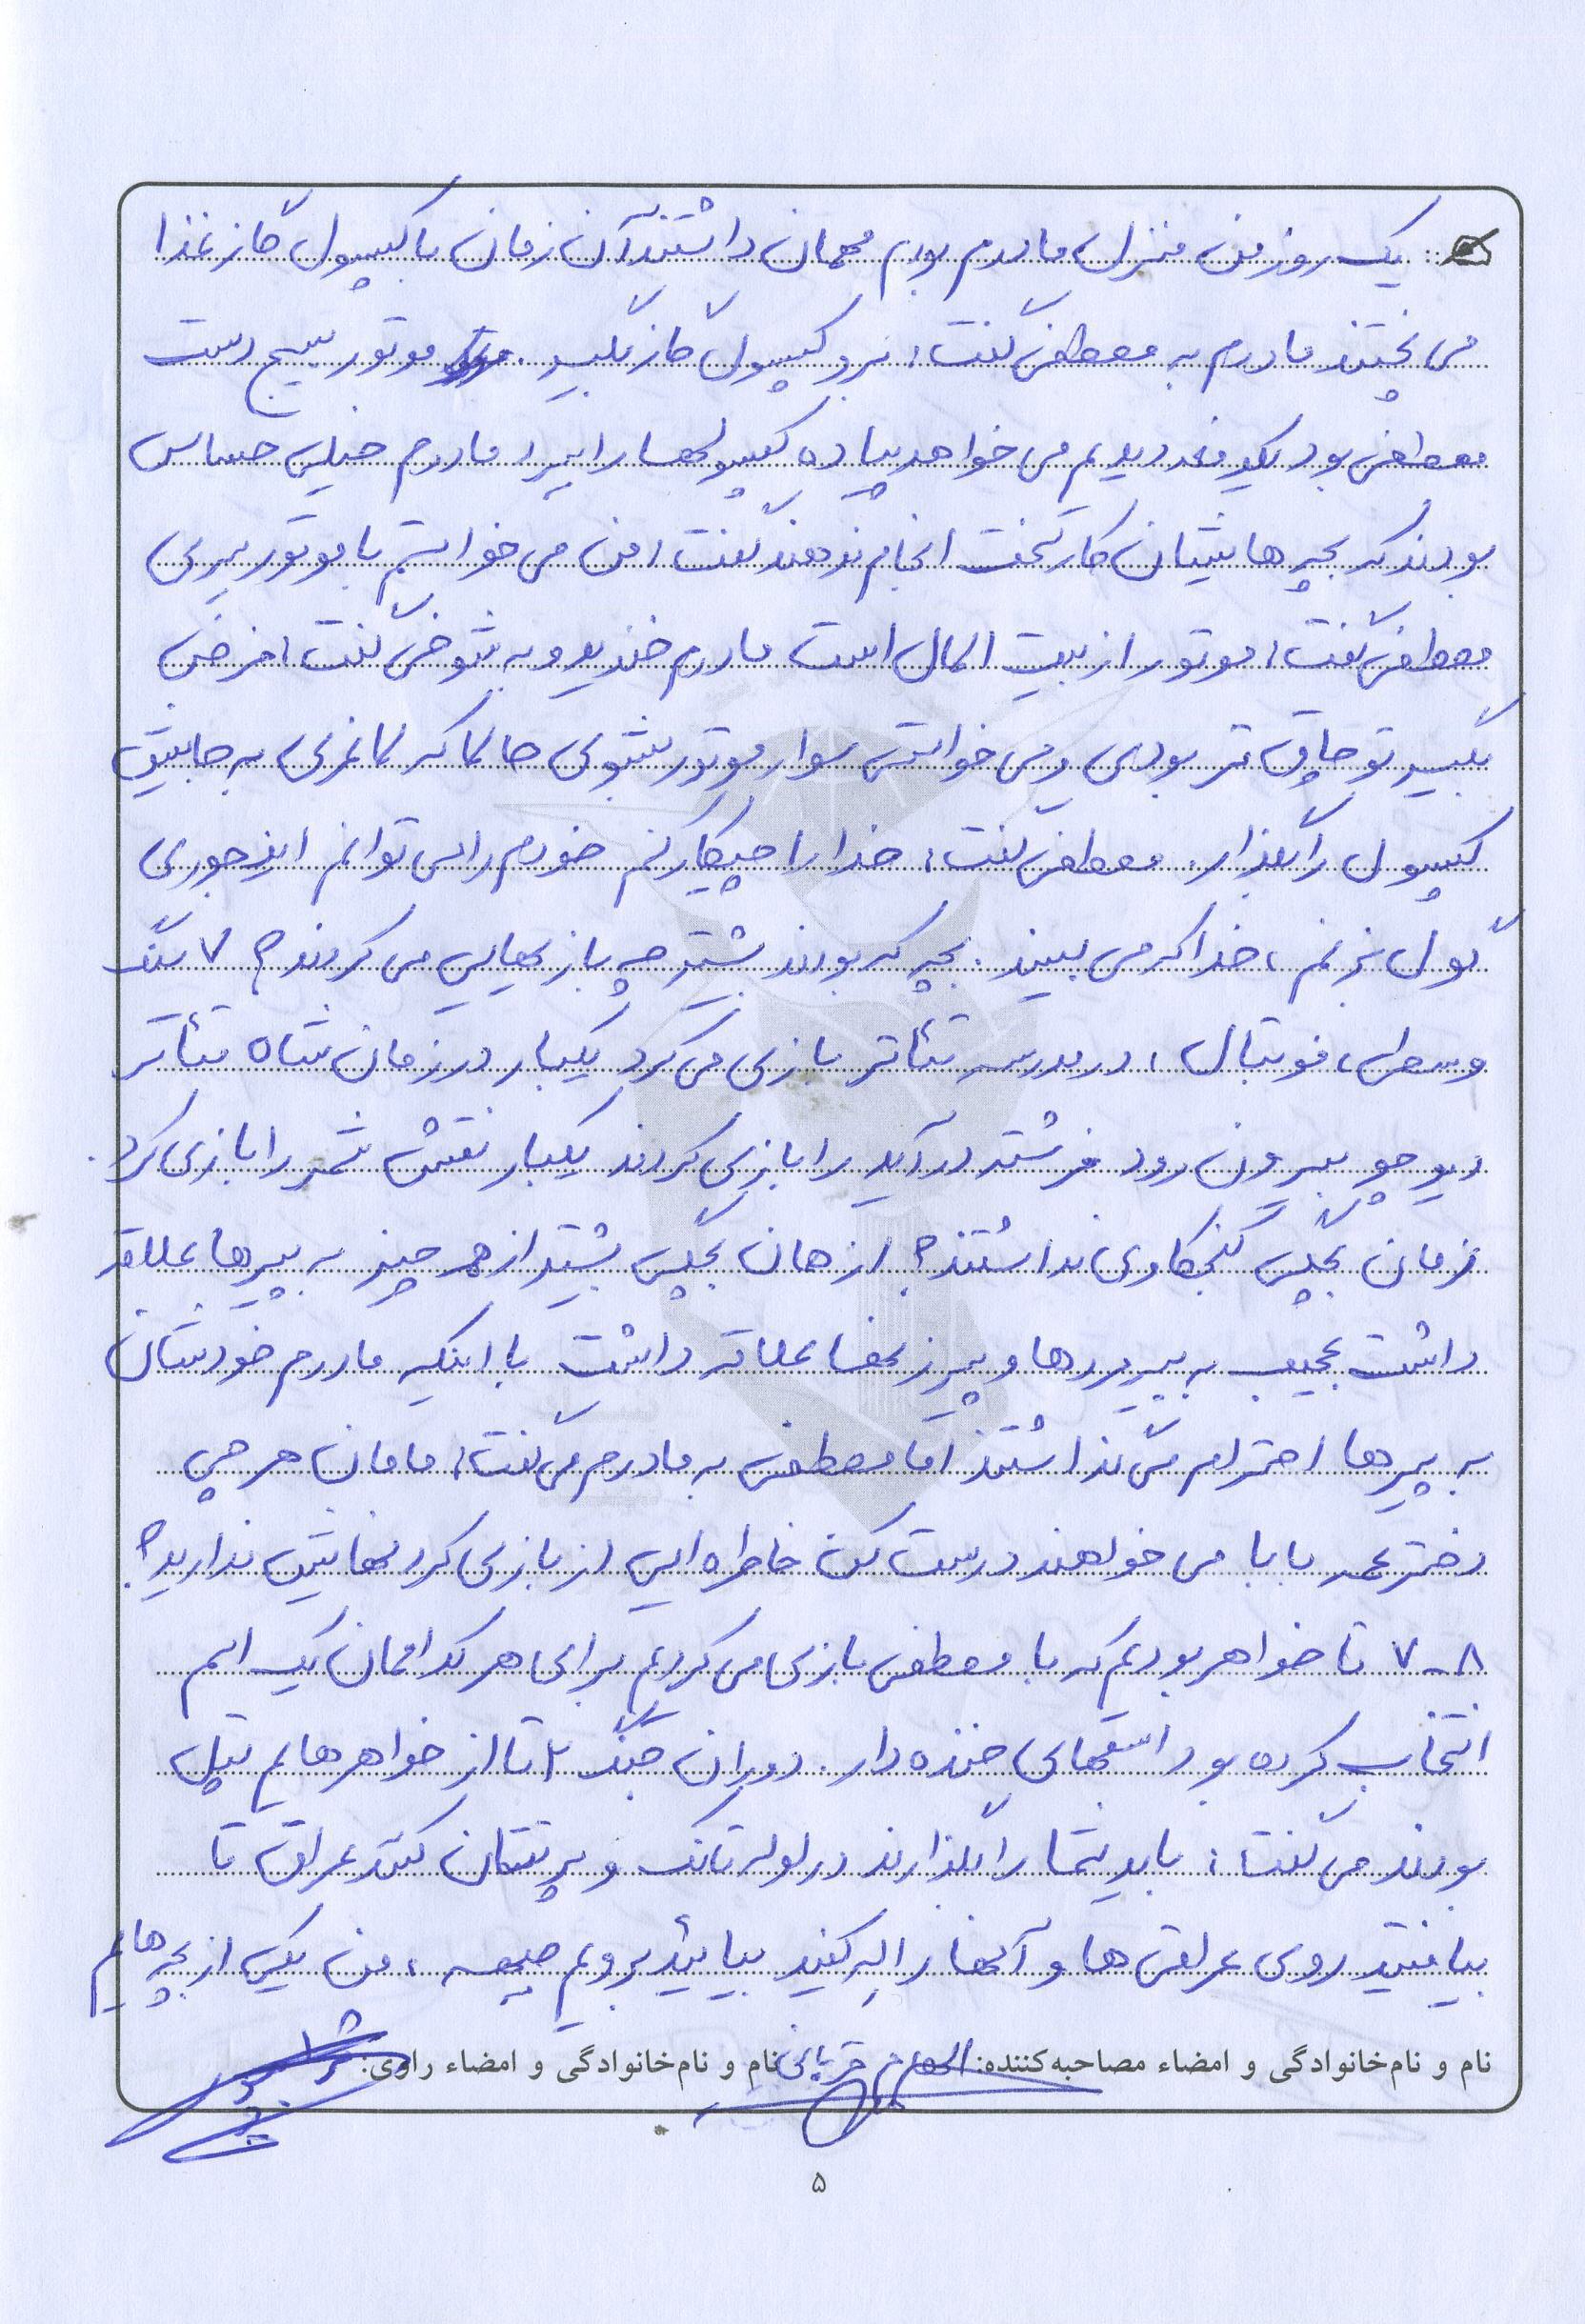 یک روز من منزل مادرم بودم مهمان داشتند آن زمان با کپسول گاز غذا
می پختند مادرم به مصطفی گفت: برو کپسول گاز بگیر. موتور بسیج دست
مصطفی بود یکدفعه دیدیم می خواهد پیاده کپسولها را ببرد مادرم خیلی حساس
بودند که بچه هایشان کار سخت انجام ندهند گفت: من می خواستم با موتور ببری
مصطفی گفت: موتور از بیت المال است مادرم خندید و به شوخی گفت: فرض
بگیر تو چاق تر بودی و می خواستی سوار موتور بشوی حالا که لاغری به جایش
کپسول را بگذار. مصطفی گفت: خدا را چیکار کنم خودم را می توانم اینجوری
گول بزنم، خدا که می بیند. بچه که بودند بیشتر چه بازیهایی می کردند؟ ۷ سنگ
وسطی، فوتبال، در مدرسه تئاتر بازی می کرد یکبار در زمان شاه تئاتر
دیو چو بیرون رود فرشته درآید را بازی کردند یکبار نقش شمر را بازی کرد.
زمان بچگی کنجکاوی نداشتند؟ از همان بچگی بیشتر از هر چیز به پیرها علاقه
داشت عجیب به پیرمردها و پیرزنها علاقه داشت با اینکه مادرم خودشان
به پیرها احترام می گذاشتند اما مصطفی به مادرم می گفت: مامان هر چی
دختر عمه بابا می خواهند درست کن خاطره ایی از بازی کردنهایش ندارید؟
۷-۸ تا خواهر بودیم که با مصطفی بازی می کردیم برای هر کداممان یک اسم
انتخاب کرده بود اسمهای خنده دار. دوران جنگ ۲ تا از خواهرهایم تپل
بودند می گفت: باید شما را بگذارند در لوله تانک و پرتتان کنند عراق تا
بیافتید روی عراقی ها و آنها را له کنید بیائید برویم جبهه، من یکی از بچه هایم
نام و نام‌خانوادگی و امضاء مصاحبه‌کننده: الهام قربانی نام و نام‌خانوادگی و امضاء راوی:
۵